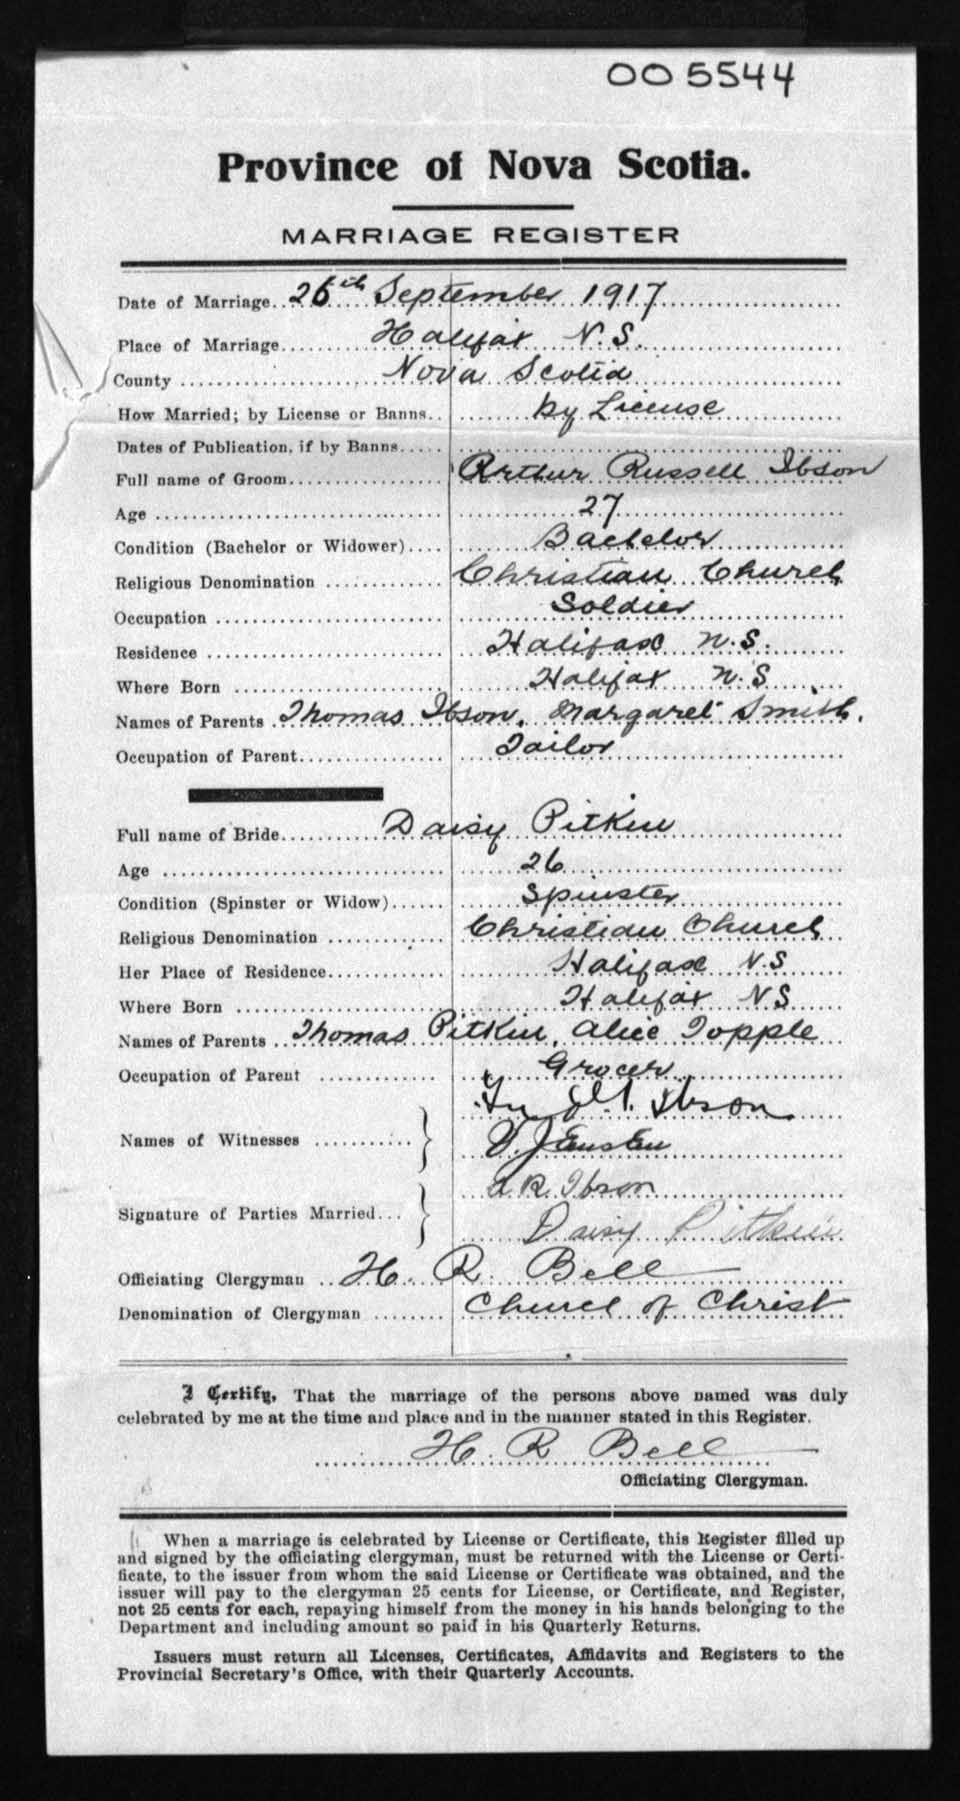 005544
Province of Nova Scotia.
MARRIAGE REGISTER
Date of Marriage 26th September 1917
Place of Marriage Halifax N.S.
County Nova Scotia
How Married; by License or Banns by License
Dates of Publication, if by Banns
Full name of Groom Arthur Russell Ibson
Age 27
Condition (Bachelor or Widower) Bachelor
Religious Denomination Christian Church
Occupation Soldier
Residence Halifax N.S.
Where Born Halifax N.S
Names of Parents Thomas Ibson, Margaret Smith.
Occupation of Parent Tailor
Full name of Bride Daisy Pitkin
Age 26
Condition (Spinster or Widow) Spinster
Religious Denomination Christian Church
Her Place of Residence Halifax N.S
Where Born Halifax NS
Names of Parents Thomas Pitkin, Alice Topple
Occupation of Parent Grocer
Ibson
Names of Witnesses
A.R. Ibson
Signature of Parties Married
Daisy Pitkin
Officiating Clergyman H. R. Bell
Denomination of Clergyman Church of Christ
I Certify, That the marriage of the persons above named was duly
celebrated by me at the time and place and in the manner stated in this Register.
H. R Bell
Officiating Clergyman.
When a marriage is celebrated by License or Certificate, this Register filled up
and signed by the officiating clergyman, must be returned with the License or Certi-
ficate, to the issuer from whom the said License or Certificate was obtained, and the
issuer will pay to the clergyman 25 cents for License, or Certificate, and Register,
not 25 cents for each, repaying himself from the money in his hands belonging to the
Department and including amount so paid in his Quarterly Returns.
Issuers must return all Licenses, Certificates, Affidavits and Registers to the
Provincial Secretary's Office, with their Quarterly Accounts.